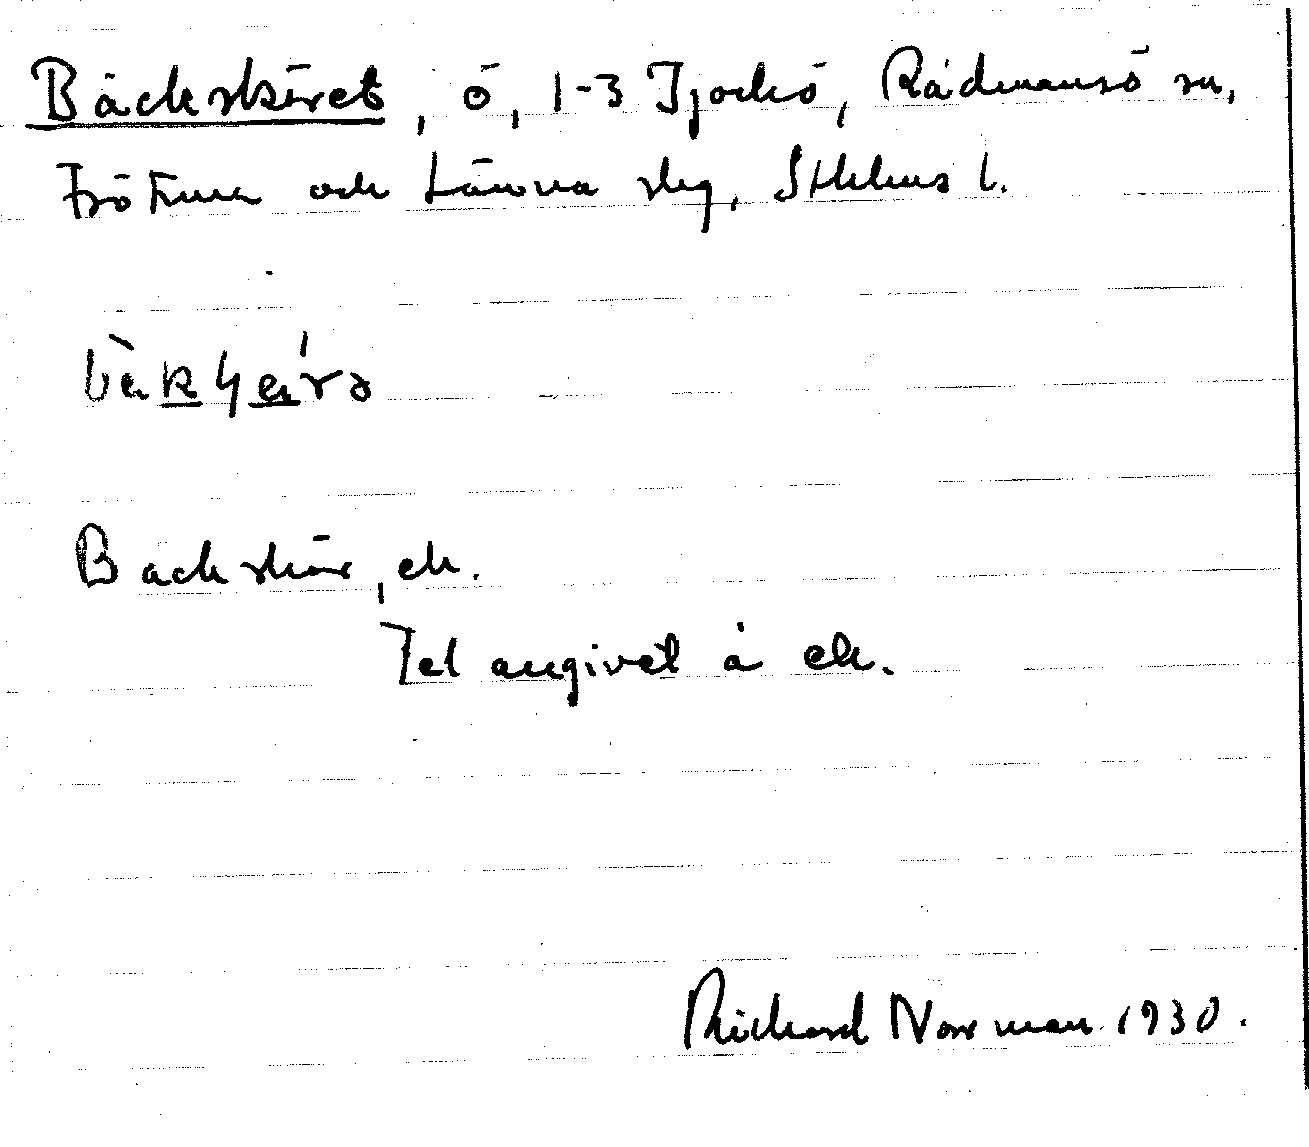 Bäckskäret, ö, 1-3 Tjockö, Rådmansö sn,
Frötuna och Länna skg, Sthlms l.
Backskär, ek.
Fel angivet å ek.
Richard Norrman 1930.